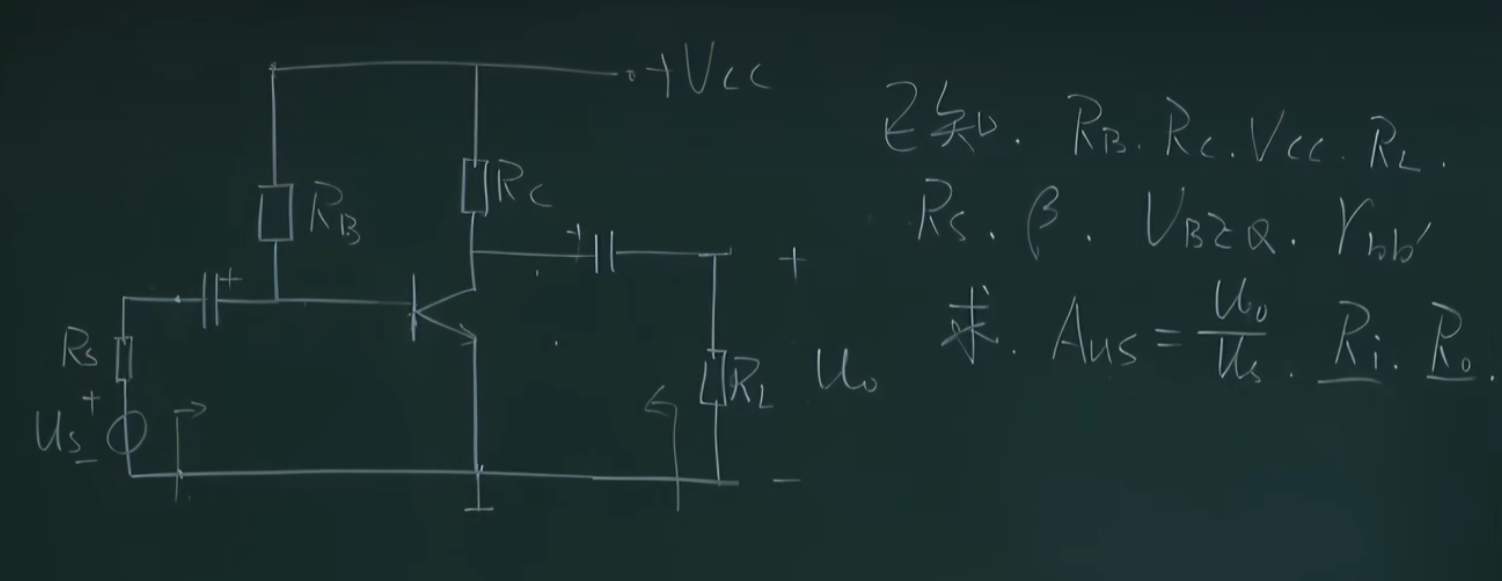 +Vcc
RB
Rc
+
+
+
Rs
+
us
-
RL
uo
-
已知. RB. Rc. Vcc. RL.
Rs. β. UBEQ. rbb'
求. Aus = uo/us. Ri. Ro.